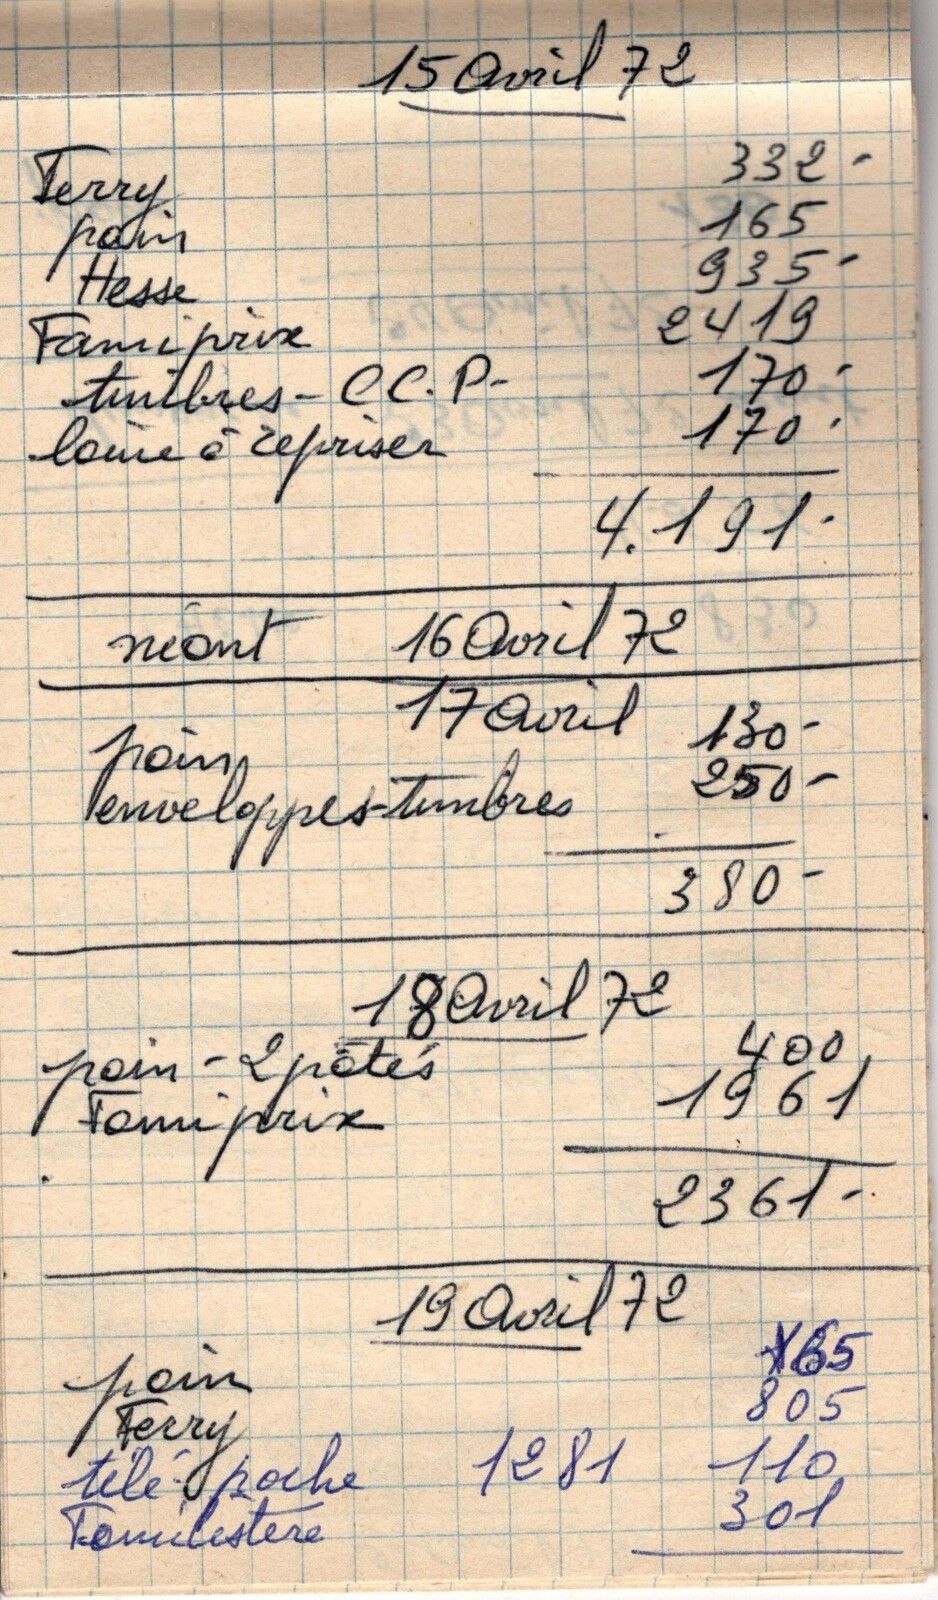 15 Avril 72
Ferry 332-
pain 165
Hesse 935-
Famiprix 2419
timbres - C C.P- 170-
laine à repriser 170.
4.191-
néant 16 Avril 72
17 Avril
pain 130-
enveloppes-timbres 250-
380-
18 Avril 72
pain - 2 pâtés 400
Famiprix 1961
2361-
19 Avril 72
pain 65
Ferry 805
télé-poche 1281 110
Familistère 301